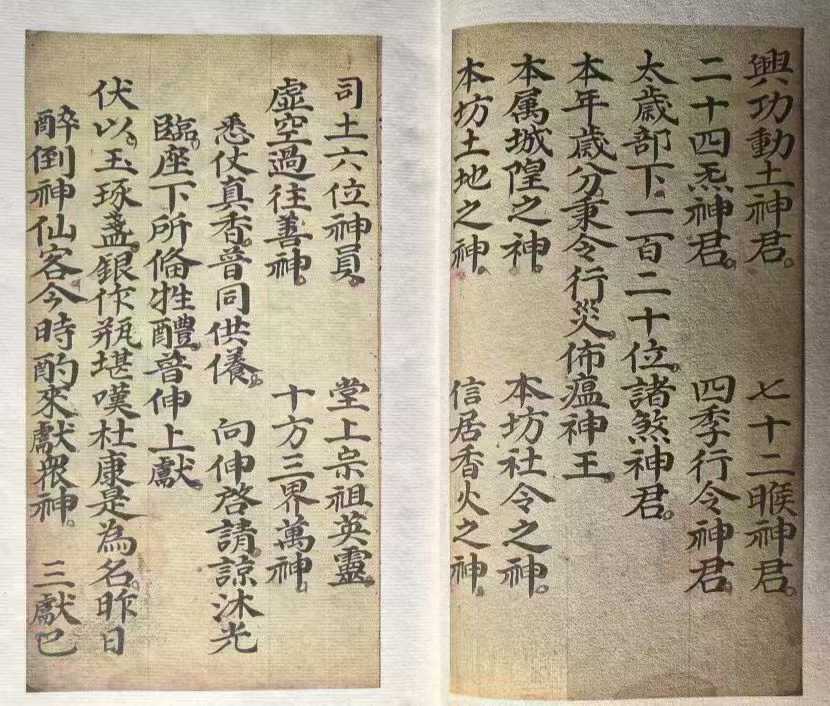 興功動土神君。　七十二睺神君。
二十四炁神君。　四季行令神君。
太歲部下一百二十位。諸煞神君。
本年歲分秉令行災。佈瘟神王。
本属城隍之神。　本坊社令之神。
本坊土地之神。　信居香火之神。
司土六位神員。　堂上宗祖英靈。
虛空過往善神。　十方三界萬神。
悉仗真香。普同供養。　向伸啓請。諒沐光
臨。座下所俻牲醴。普伸上獻。
伏以。玉琢盞。銀作瓶。堪嘆杜康是為名。昨日
醉倒神仙客。今時酌來獻衆神。　三獻已